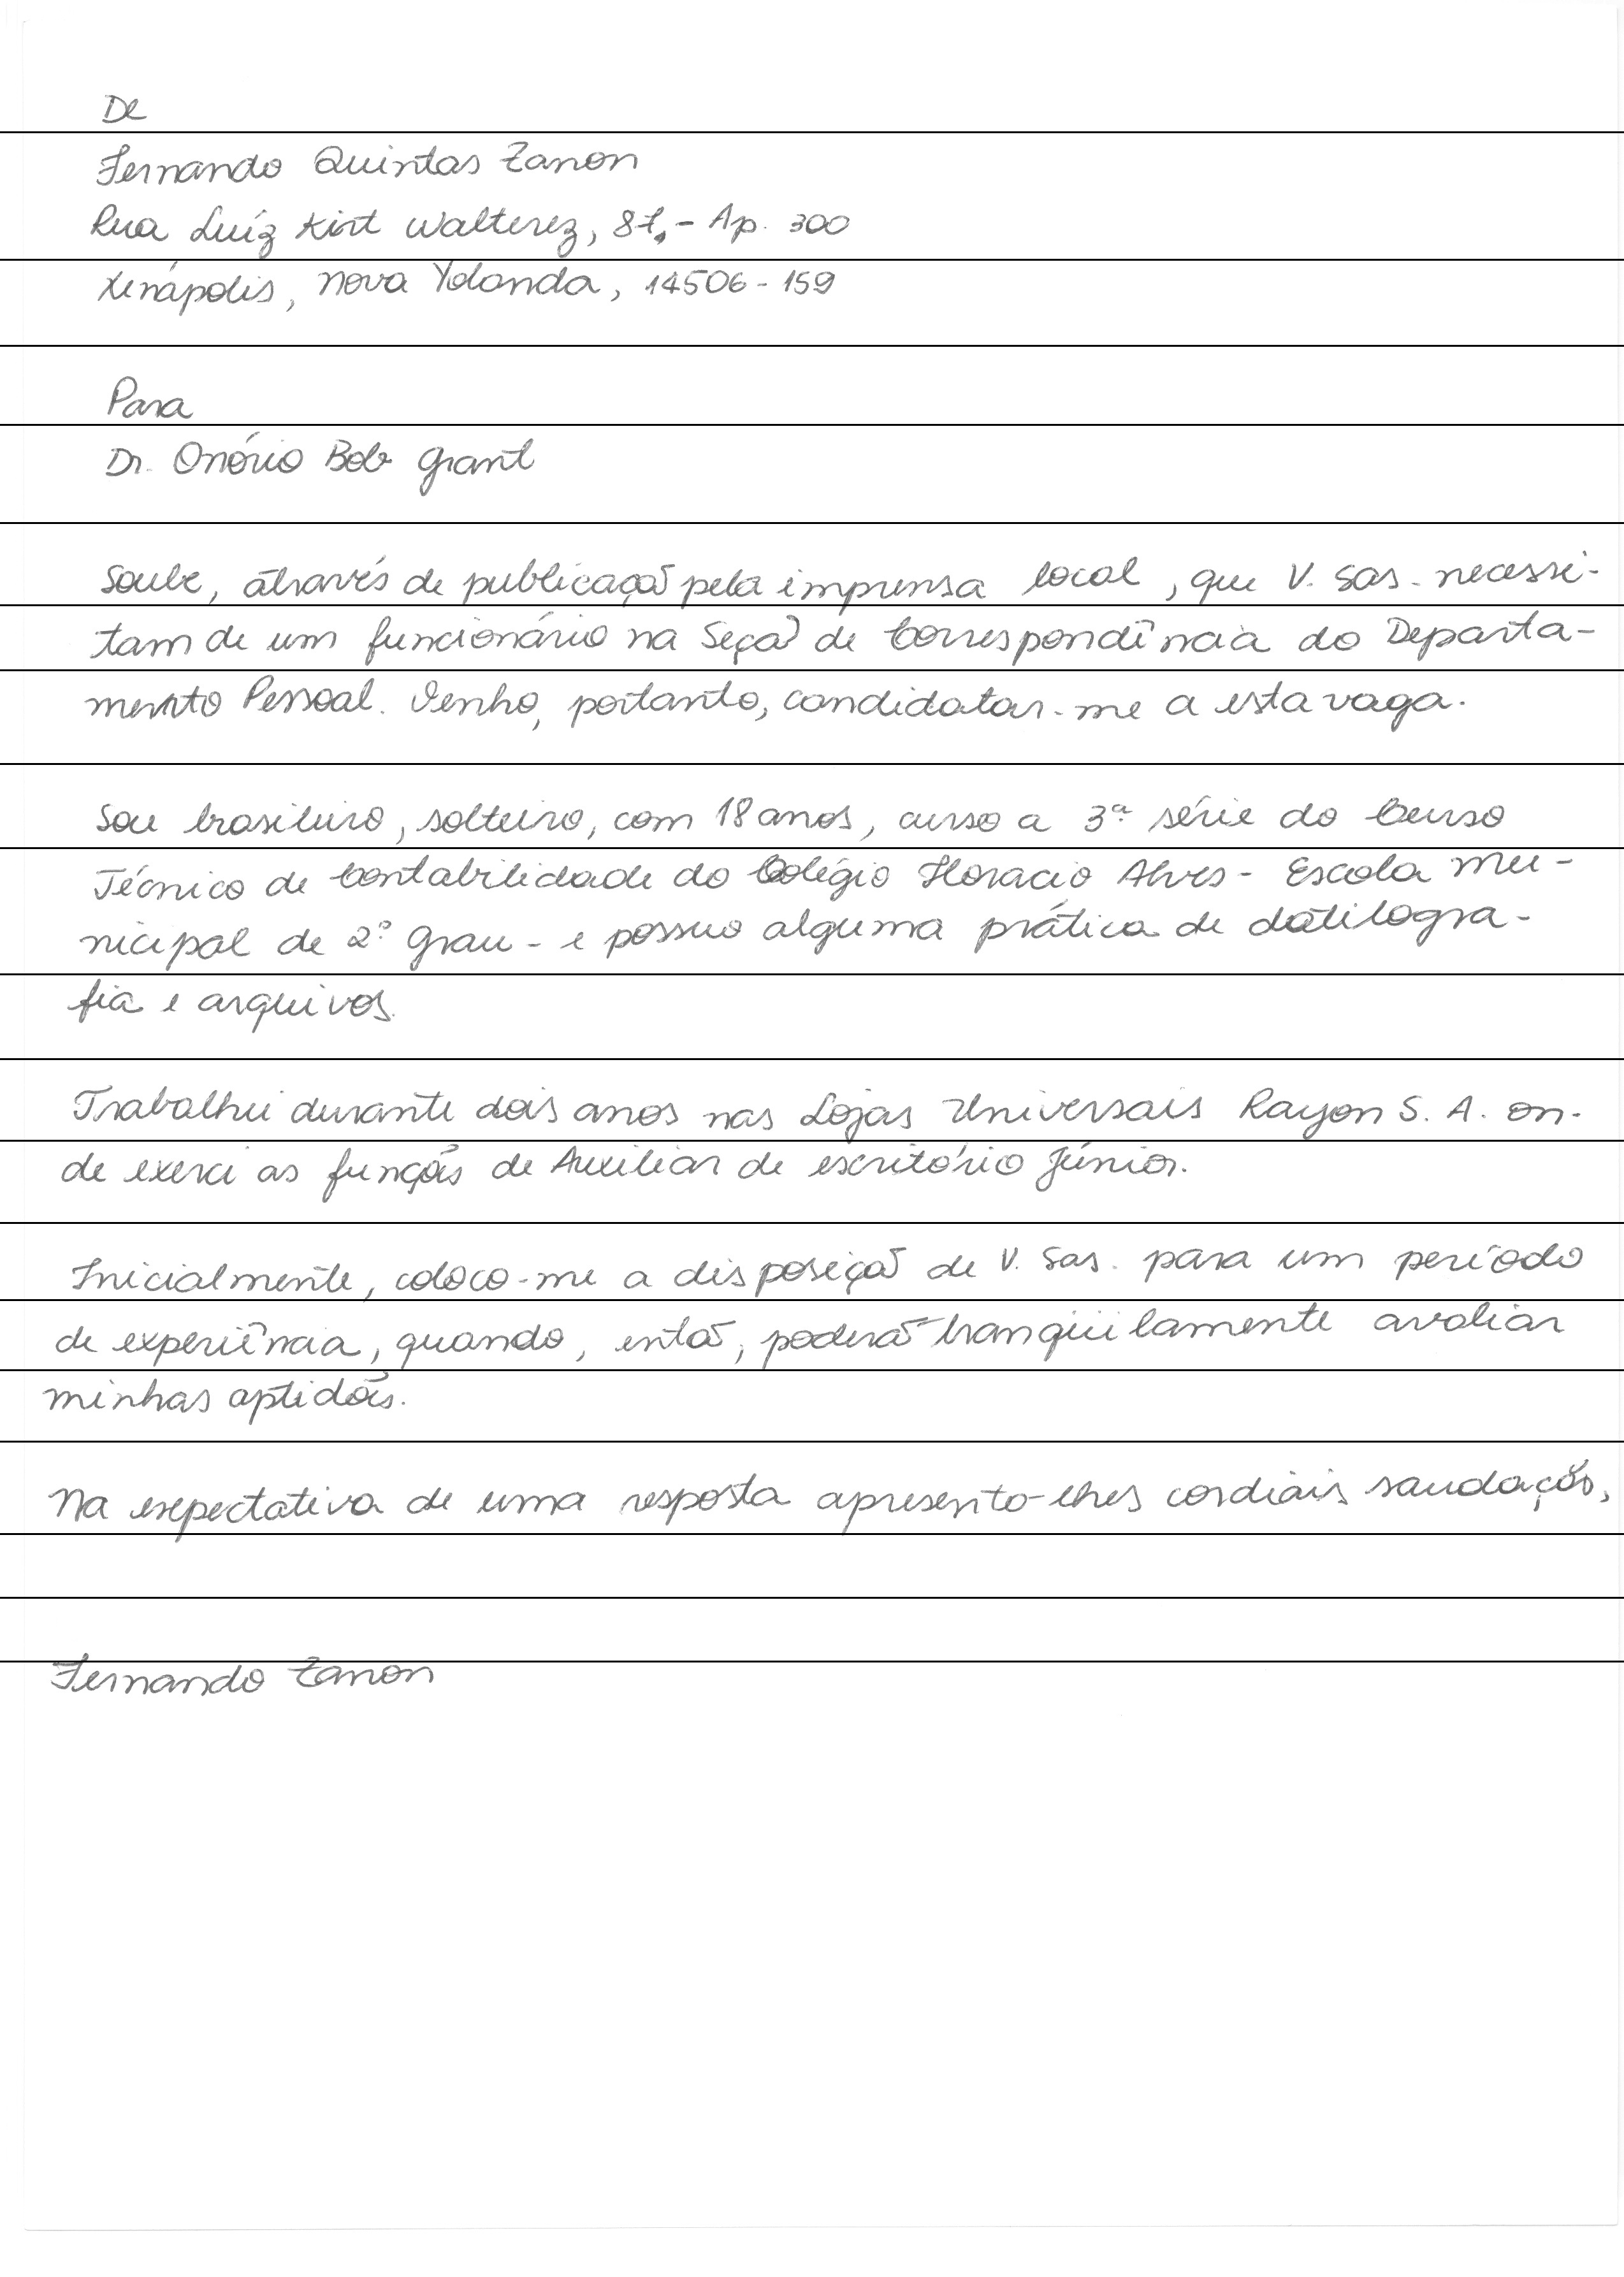 De
Fernando Quintas Zanon
Rua Luíz Kirt Walterez, 87, - Ap. 300
Xenápolis, Nova Yolanda, 14506-159
Para
Dr. Onório Bob Grant
Soube, através de publicação pela imprensa local, que V. Sas. necessi-
tam de um funcionário na Seção de Correspondência do Departa-
mento Pessoal. Venho, portanto, candidatar-me a esta vaga.
Sou brasileiro, solteiro, com 18 anos, curso a 3ª série do Curso
Técnico de Contabilidade do Colégio Horacio Alves - Escola Mu-
nicipal de 2º Grau - e possuo alguma prática de datilogra-
fia e arquivos.
Trabalhei durante dois anos nas Lojas Universais Rayon S. A. on-
de exerci as funções de Auxiliar de escritório Júnior.
Inicialmente, coloco-me a disposição de V. Sas. para um período
de experiência, quando, então, poderão tranqüilamente avaliar
minhas aptidões.
Na expectativa de uma resposta apresento-lhes cordiais saudações,
Fernando Zanon